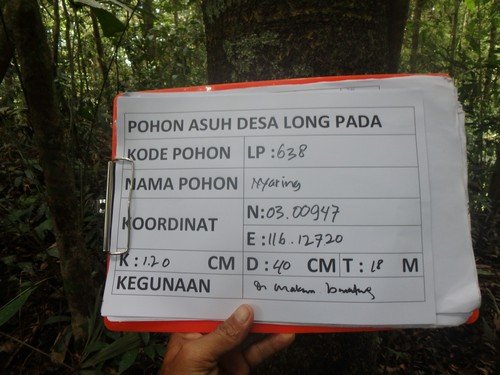 POHON ASUH DESA LONG PADA
KODE POHON LP : 638
NAMA POHON Nyaring
KOORDINAT N: 03.00947
E : 116.12720
K : 120 CM D : 40 CM T : 18 M
KEGUNAAN Di makan binatang